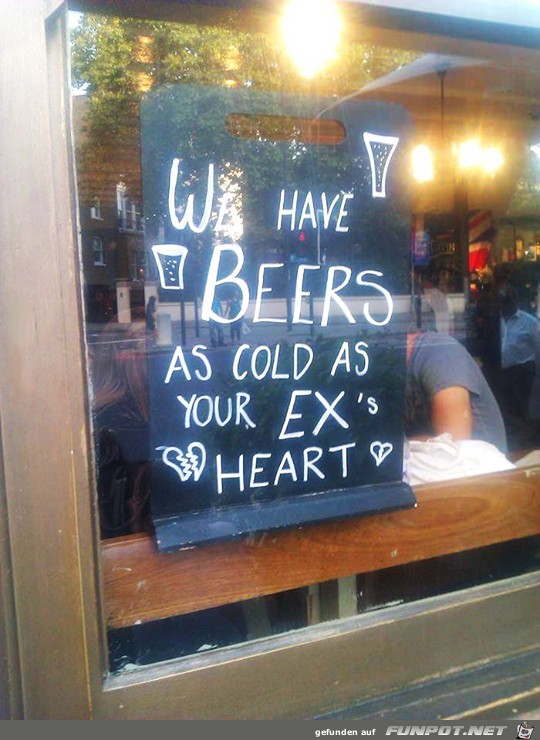 WE HAVE
BEERS
AS COLD AS
YOUR EX's
HEART
gefunden auf FUNPOT.NET